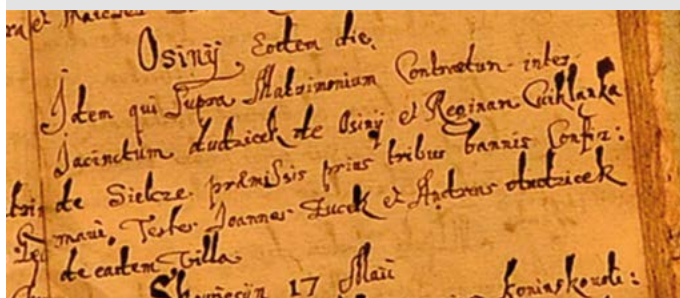 et Matheus
Osinÿ Eodem die.
Idem qui Supra Matrimonium Contractum inter
Jacinctum dudzicek de Osinÿ et Reginan Cuiklanka
de Sielcze præmissis prius tribus bannis Confir:
mavi. Testes Joannes Zucek et Andreas dudzicek
de eadem Villa
17 Maii koniaskowoli: